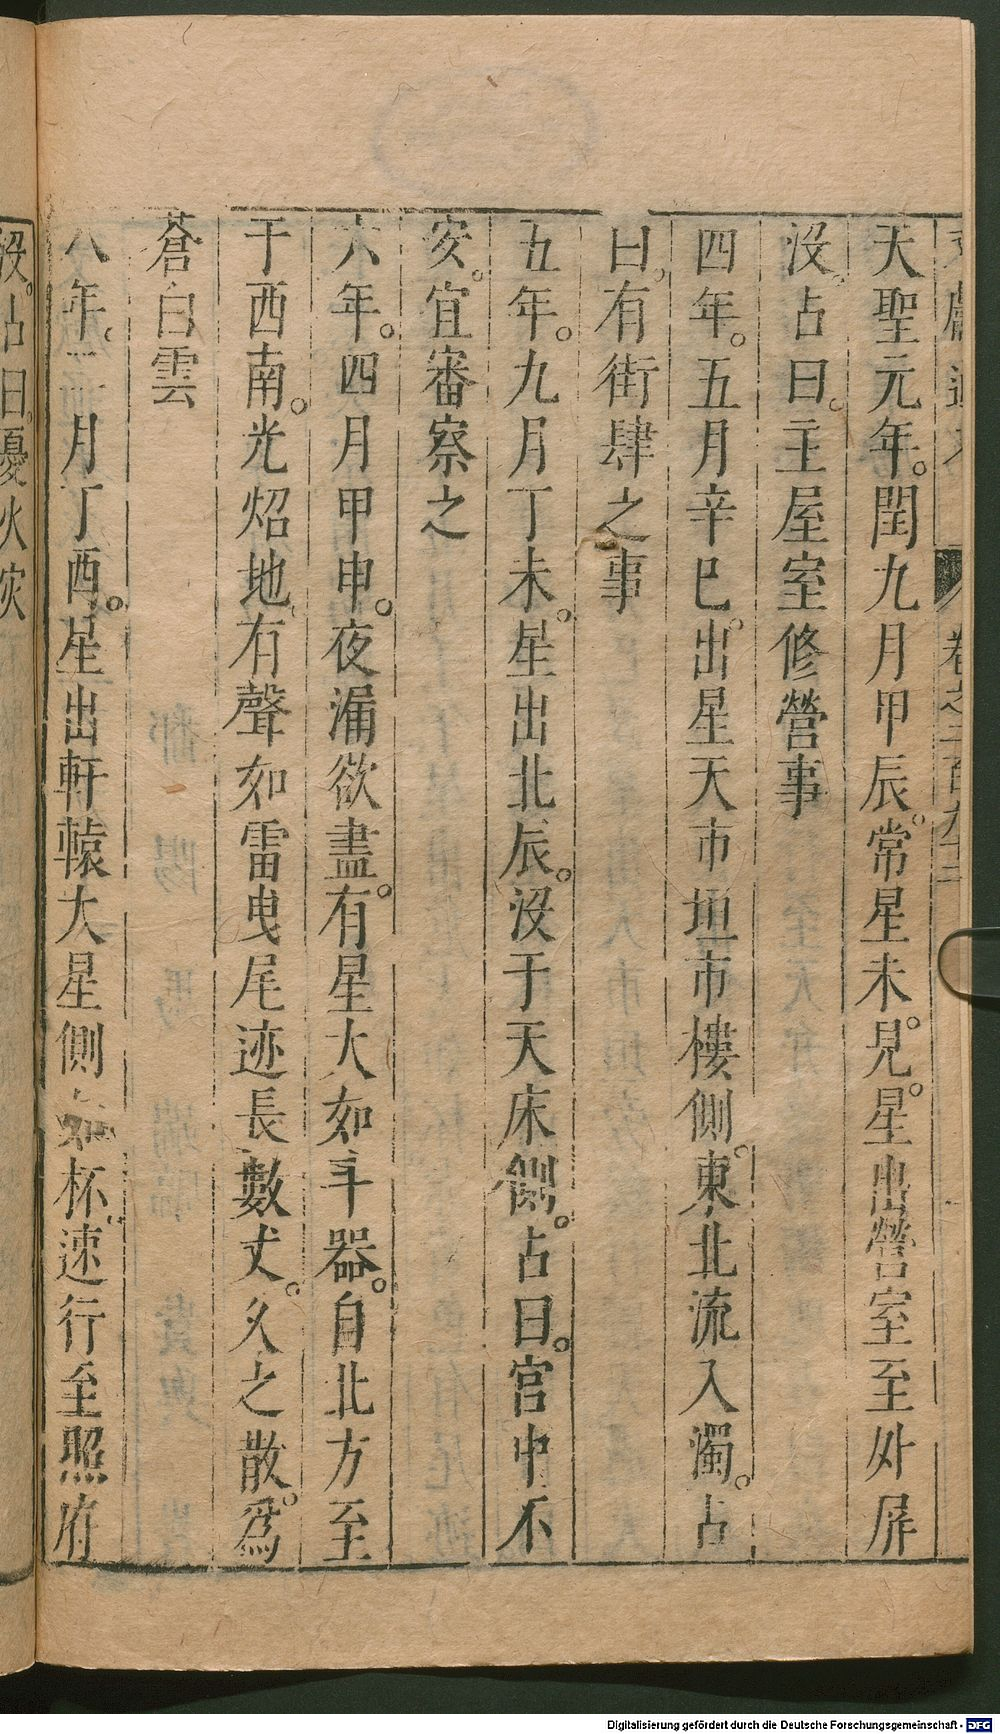 卷之二百九十二
天聖元年。閏九月甲辰。常星未見。星出營室至外屏
沒。占曰。主屋室修營事
四年。五月辛巳。出星天市垣市樓側。東北流入濁。占
曰。有街肆之事
五年。九月丁未。星出北辰。沒于天床側。占曰。宮中不
安。宜審察之
六年。四月甲申。夜漏欲盡。有星大如斗器。自北方至
于西南。光炤地有聲如雷曳尾迹長數丈。久之散。為
蒼白雲
八年。二月丁酉。星出軒轅大星側如杯速行至照府
沒。占曰。憂火灾
Digitalisierung gefördert durch die Deutsche Forschungsgemeinschaft - DFG